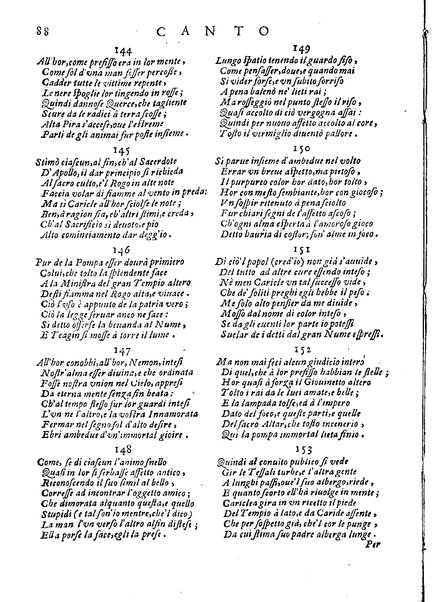 88
CANTO
144
All'hor, come prefisso era in lor mente,
Come sol d'vna man fesser percosse,
Cadder tutte le vittime repente,
Le nere spoglie lor tingendo in rosse;
Quindi dannose Querce, che tagliente
Scure da le radici à terra scosse;
Alta Pira s'accese, oue l'estreme
Parti de gli animai fur poste insieme.
145
Stimò ciascun, al fin, ch'al Sacerdote
D'Apollo, il dar principio si richieda
Al sacro culto, e'l Rogo in alte note
Faccia volar di fiamme al vento in preda:
Ma si Caricle all'hor sciolse le note;
Ben, à ragion sia, ch'altri stimi, e creda,
Ch'al Sacrificio si deuoto, e pio
Alto cominciamento dar degg'io.
146
Pur de la Pompa esser dourà primiero
Colui, che tolto la splendente face
A la Ministra del gran Tempio altero
Desti fiamma nel Rogo alta, e viuace.
Ciò l'vso è appunto de la patria vero;
Ciò la legge seruar anco ne face:
Si detto offerse la beuanda al Nume,
E Teagin si mosse à torre il lume.
147
All'hor conobbi, all'hor, Nemon, intesi
Nostr'alma esser diuina, e che ordinata
Fosse nostra vnion nel Cielo, appresi
Da eterna mente senza fin beata:
Ch'al tempo stesso fur lor guardi intesi
L'vn ne l'altro, e la vostra Innamorata
Fermar nel segno sol d'alto desire,
Ebri ambedue d'vn'immortal gioire.
148
Come, se di ciascun l'animo snello
Quasi in lor si serbasse affetto antico,
Riconoscendo il suo simil al bello,
Corresse ad incontrar l'oggetto amico;
Che dimorata alquanto questa, e quello
Stupidi (e tal son'io mentre, che'l dico)
La man l'vn verso l'altro alfin distese;
Ella porse la face, egli la prese.
149
Lungo spatio tenendo il guardo fiso,
Come pensasser, doue, e quando mai
Si vider forse, e vn subito sorriso
A pena balenò ne' lieti rai;
Ma rosseggiò nel punto stesso il riso,
Quasi accolto di ciò vergogna assai:
Quindi per nuouo affetto accolto al core,
Tosto il vermiglio diuentò pallore.
150
Si parue insieme d'ambedue nel volto
Errar vn breue aspetto, ma pietoso,
Il purpureo color hor dato, hor tolto,
Hor con mesto sembiante, hor con gioioso;
Vn sospir ritenuto à pena sciolto
Fur chiari segni de l'affetto ascoso;
Ch'ogni alma esperta à l'amoroso gioco
Detto hauria di costor; son'alme in foco.
151
Di ciò'l popol (cred'io) non già s'auuide,
Del tutto ad altre cure essendo inteso;
Nè men Caricle vn tal successo vide,
Che de' soliti preghi egli hebbe il peso.
Me solo alto pensier da me diuide,
Mosso dal nome di color inteso,
Se da gli euenti lor parte io potessi
Suelar de i detti dal gran Nume espressi.
152
Ma non mai feci alcun giudicio intero
Di quel, che à lor prefisso habbian le stelle;
Hor quasi à forza il Giouinetto altero
Tolto i rai da le luci amate, e belle;
E la lampada tolse, ed à l'impero
Dato del foco, e queste parti, e quelle
Del sacro Altar, che tosto incenerìo,
Qui la pompa immortal lieta finìo.
153
Quindi al conuito publico si vede
Gir le Tessali turbe, e l'altra gente
A lungbi passi, oue'l suo albergo, riede,
E quanto scorto ell'hà riuolge in mente;
Cariclea gira in vn ricetto il piede
Del Tempio à lato, e da Caride assente,
Che per sospetto già, che'l cor le punge,
Da cui stima suo padre alberga lunge.
Per